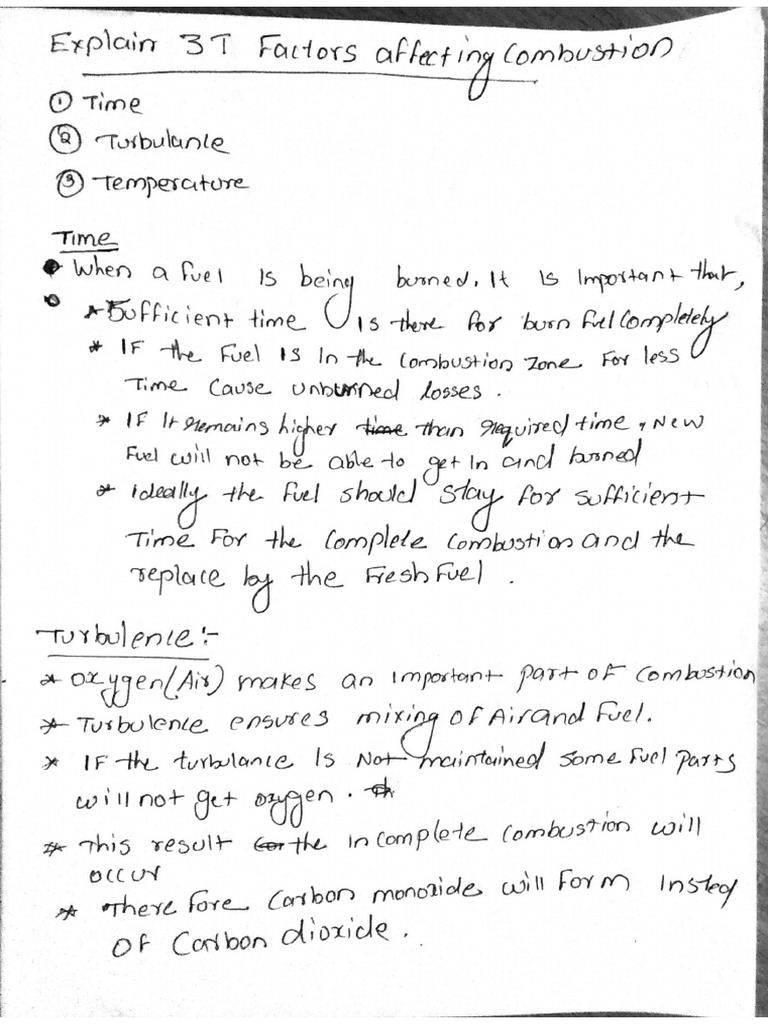 Explain 3T Factors affecting Combustion
① Time
② Turbulance
③ Temperature
Time
• When a fuel is being burned, It is important that,
* Sufficient time is there for burn fuel Completely
* IF the Fuel is In the Combustion Zone For less
Time Cause Unburned losses.
* IF It remains higher time than required time, New
Fuel will not be able to get In and burned
* ideally the fuel should stay for sufficient
Time For the Complete Combustion and the
replace by the Fresh Fuel.
Turbulence:-
* Oxygen(Air) makes an important part of Combustion
* Turbulence ensures mixing of Air and Fuel.
* IF the turbulance Is Not maintained some fuel parts
will not get oxygen.
* This result the incomplete combustion will
occur
* There fore Carbon monoxide will Form Insted
OF Carbon dioxide.